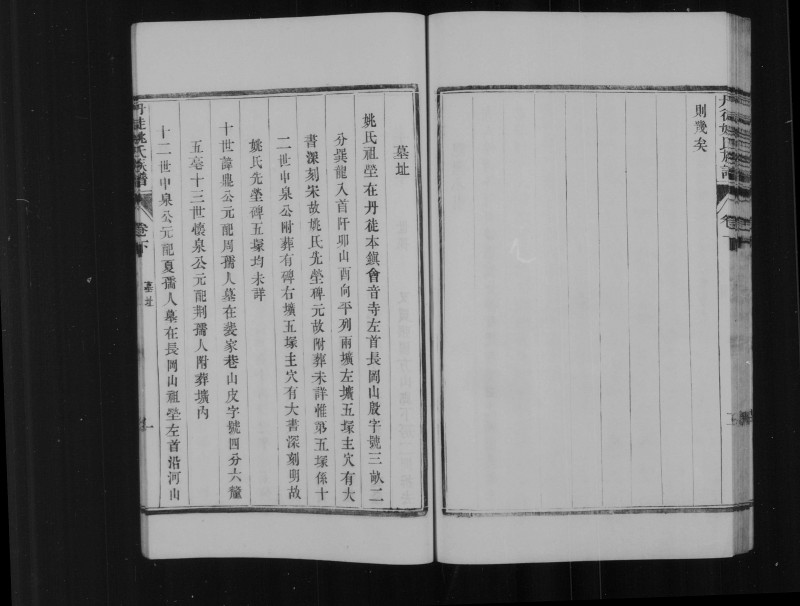 則幾矣
丹徒姚氏族譜
卷下
墓址
姚氏祖塋在丹徒本鎮會音寺左首長岡山殷字號三畝二
分巽龍入首阡卯山酉向平列兩壙左壙五塚主穴有大
書深刻宋故姚氏先塋碑元故附葬未詳惟第五塚係十
二世中泉公附葬有碑右壙五塚主穴有大書深刻明故
姚氏先塋碑五塚均未詳
十世諱鼎公元配周孺人墓在裴家巷山皮字號四分六釐
五毫十三世懷泉公元配荆孺人附葬壙內
十二世中泉公元配夏孺人墓在長岡山祖塋左首沿河山
丹徒姚氏族譜
卷下
墓址